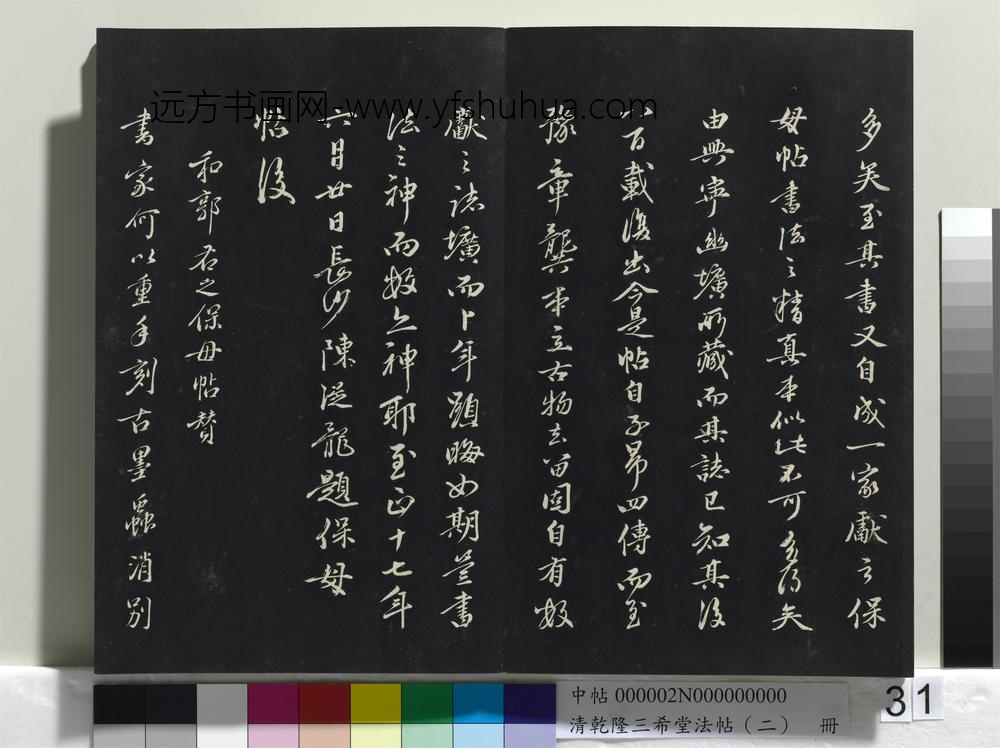 多矣至其書又自成一家獻之保
母帖書法之精真本似此不可多得矣
由興寧幽壙所藏而其誌已知其後
百載復出今是帖自子昂四傳而至
豫章龔本立古物去留固自有數
獻之誌壙而卜年顯晦如期豈書
法之神而數之神耶至正十七年
六月廿日長沙陳從龍題保母
帖後
和郭右之保母帖贊
書家何以重手刻古墨蟲消別
远方书画网-www.yfshuhua.com
中帖 000002N000000000
清乾隆三希堂法帖（二） 册
31